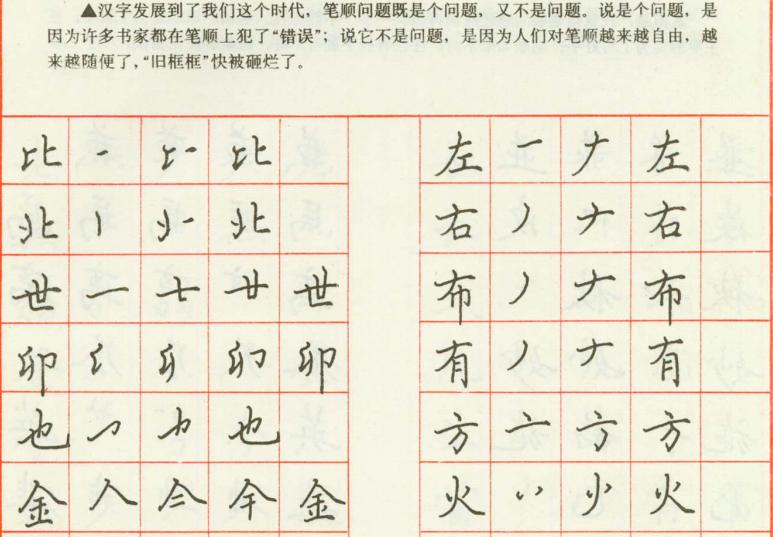 ▲汉字发展到了我们这个时代，笔顺问题既是个问题，又不是问题。说是个问题，是
因为许多书家都在笔顺上犯了“错误”；说它不是问题，是因为人们对笔顺越来越自由，越
来越随便了，“旧框框”快被砸烂了。
比 比
北 北
世 一 世
卯 卯
也 也
金 人 金
左 一 𠂇 左
右 丿 𠂇 右
布 丿 𠂇 布
有 丿 𠂇 有
方 亠 方 方
火 火